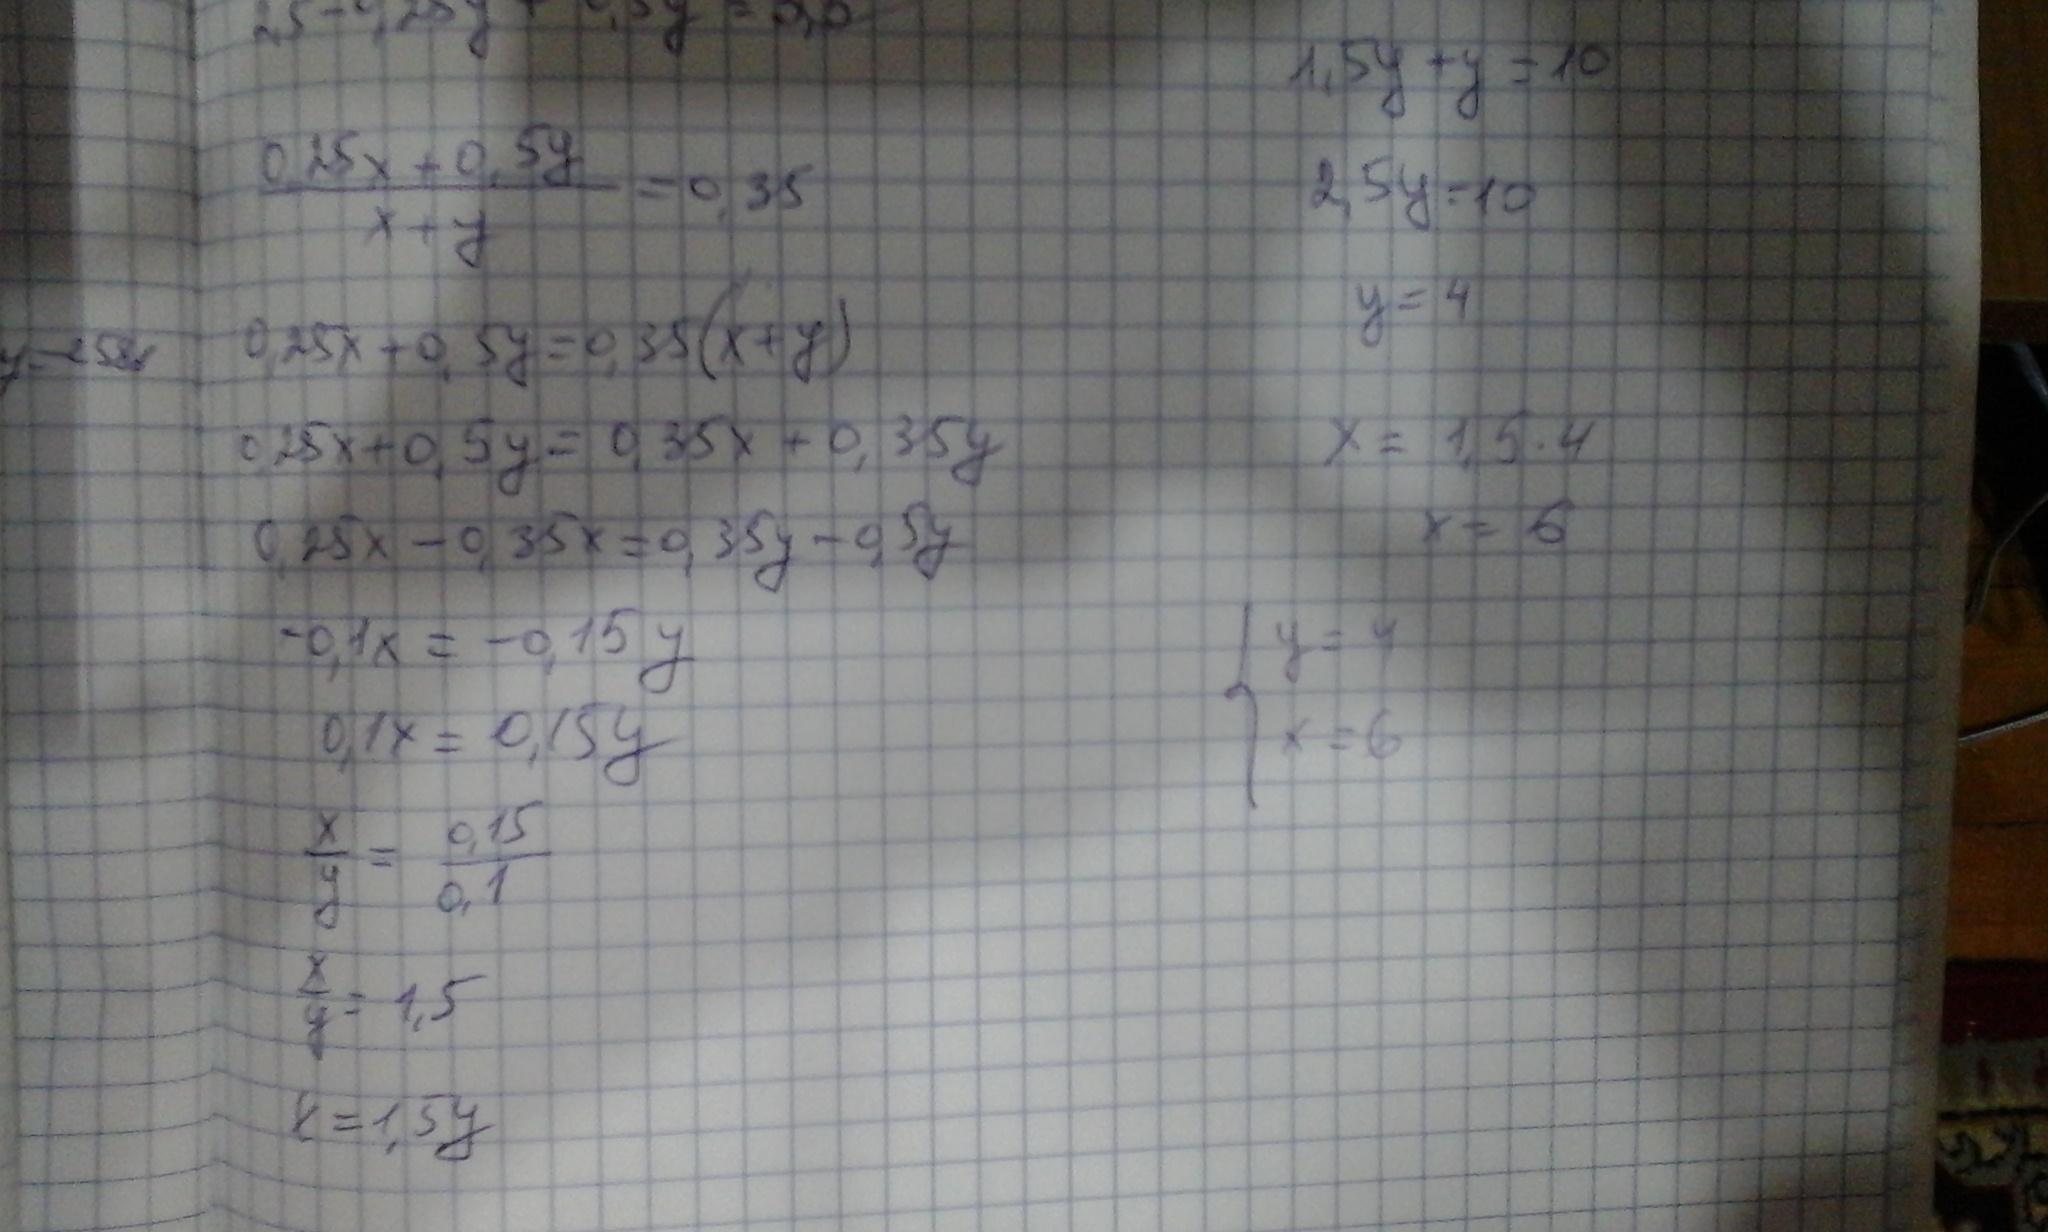 0,25x + 0,5y / x + y = 0,35
0,25x + 0,5y = 0,35(x + y)
0,25x + 0,5y = 0,35x + 0,35y
0,25x - 0,35x = 0,35y - 0,5y
-0,1x = -0,15y
0,1x = 0,15y
x / y = 0,15 / 0,1
x / y = 1,5
x = 1,5y
1,5y + y = 10
2,5y = 10
y = 4
x = 1,5 · 4
x = 6
{ y = 4
x = 6